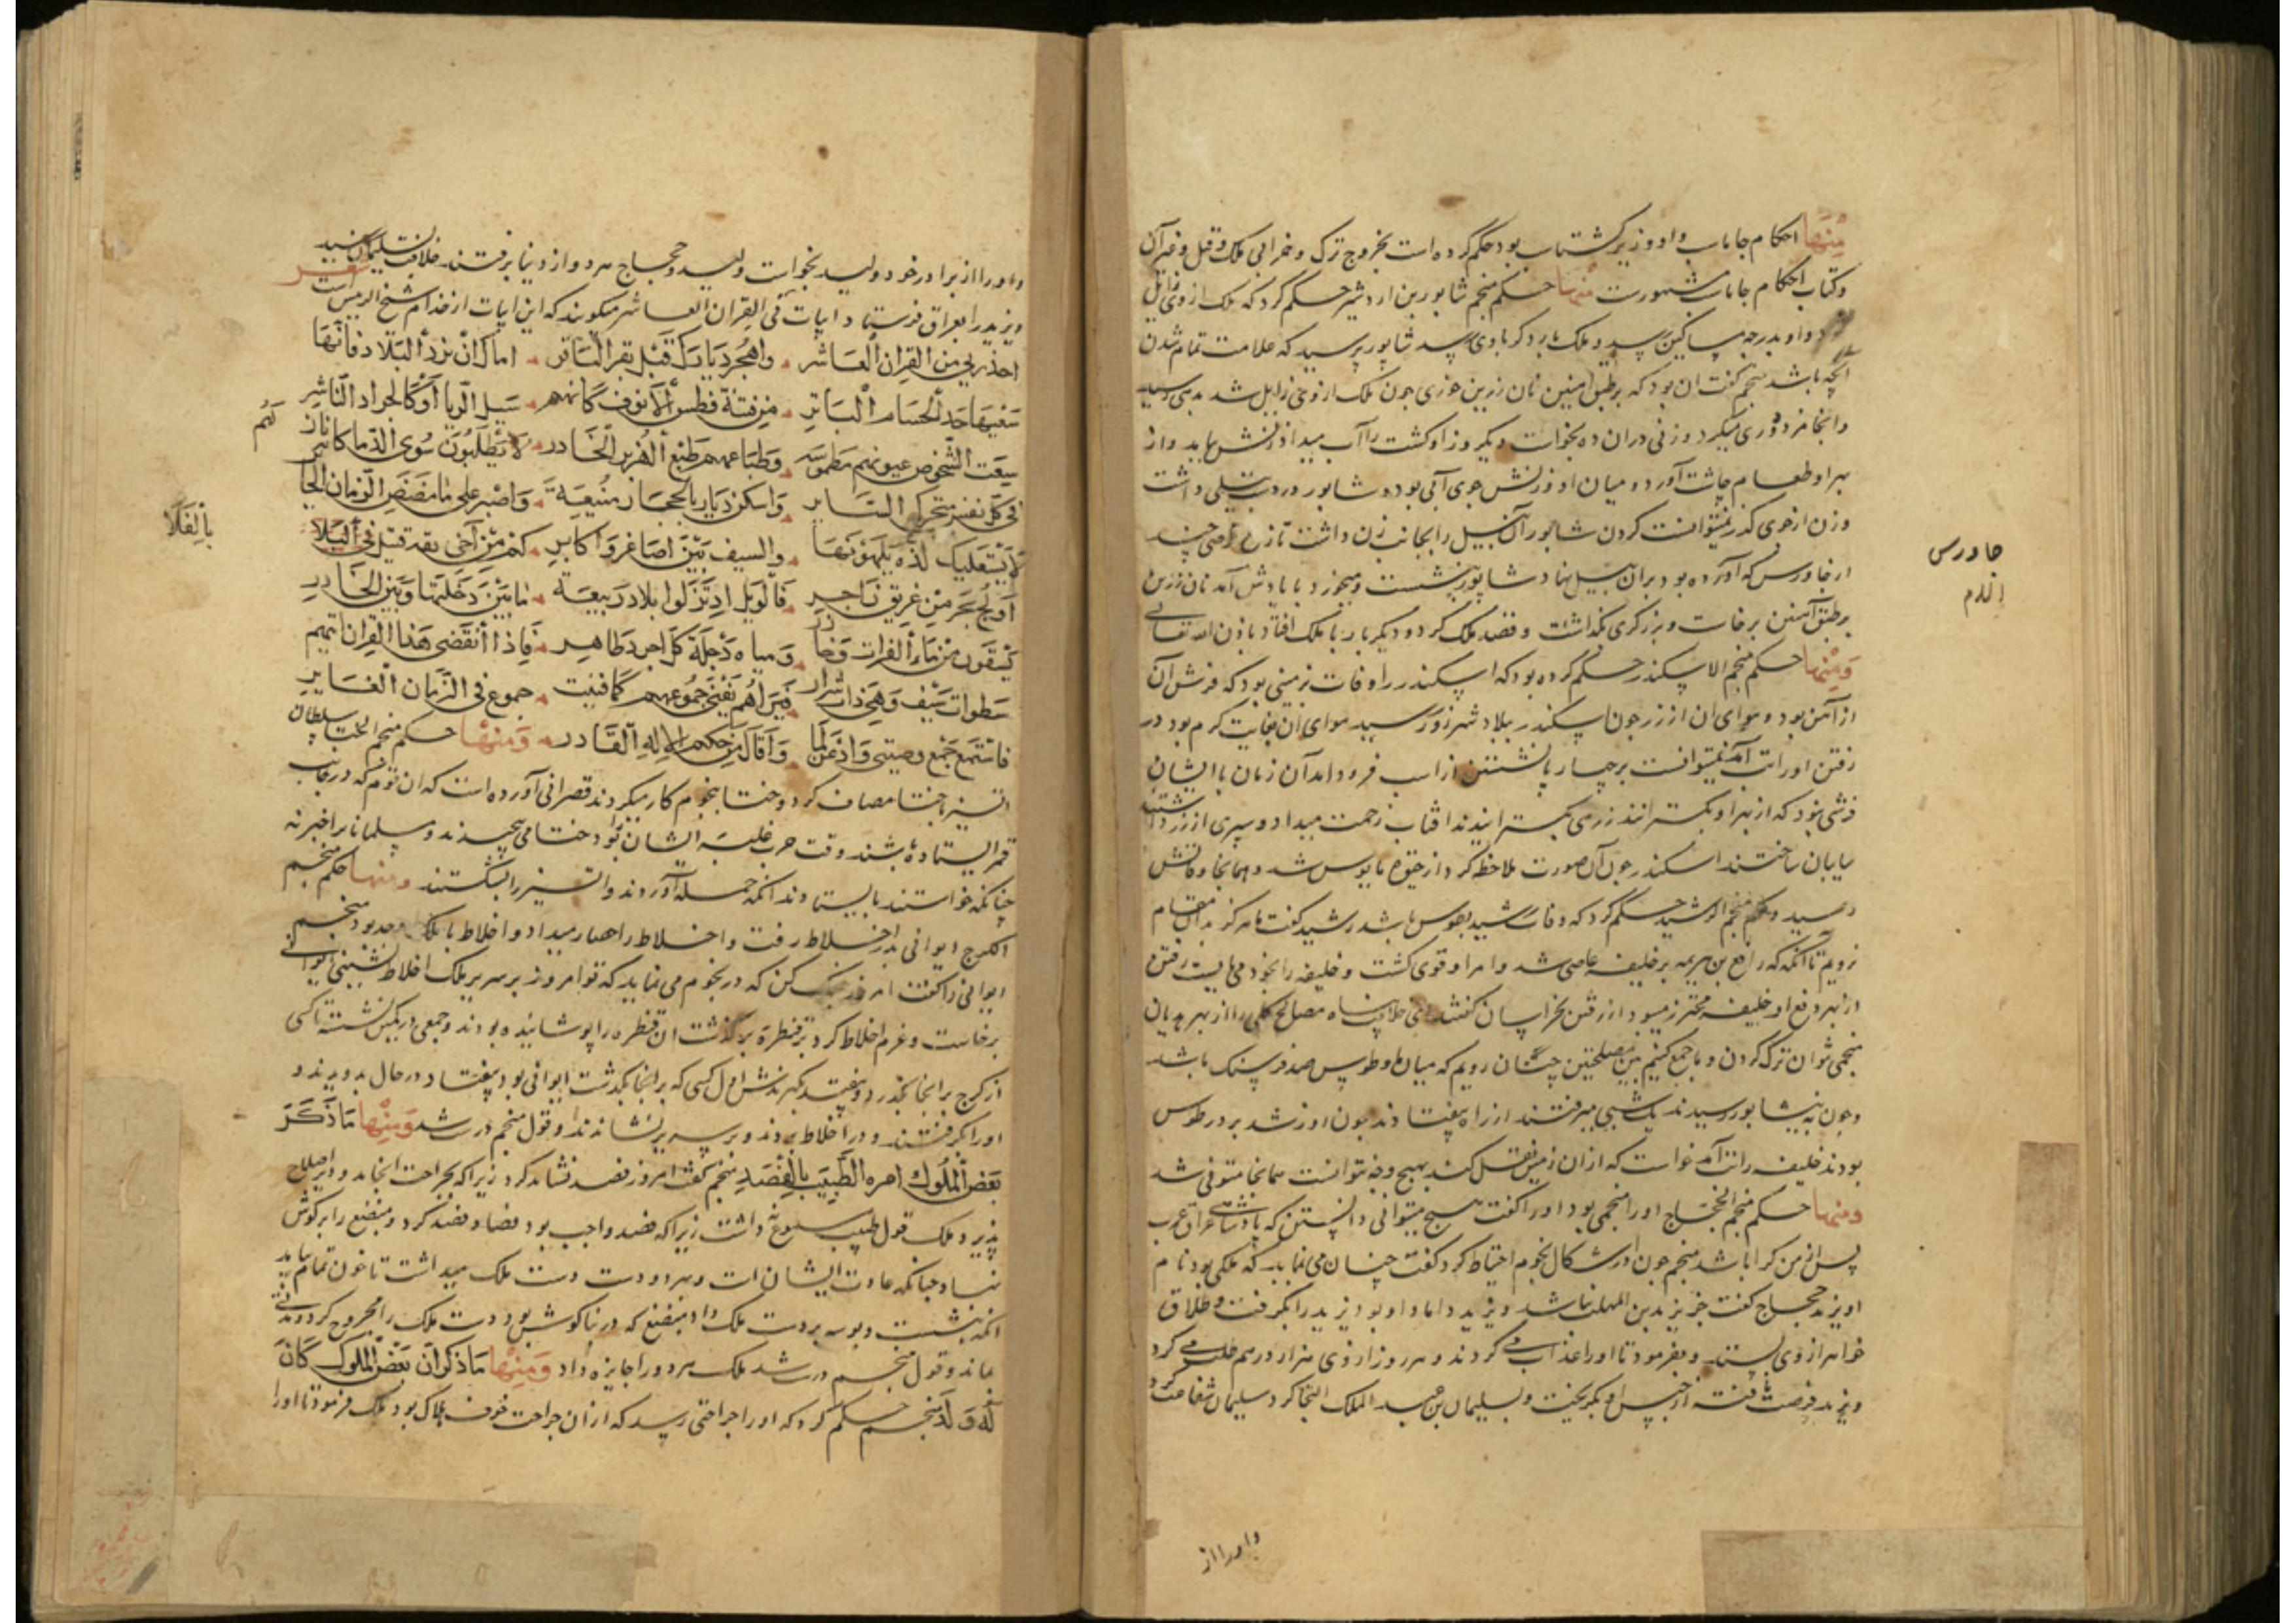 مِنْهَا احکام جاماسب و او وزیر گشتاسب بود حکم کرده است بخروج ترک و خرابی ملک و قتل و غیر آن
و کتاب احکام جاماسب مشهورست منها حکم منجم شابور بن اردشیر حکم کرد که ملک از وی زایل
و او بدرجه مساکین رسد و ملک بار دکر باوی رسد شابور پرسید که علامت تمام شدن
انچه باشد منجم کفت ان بود که بر طبق آهنین نان زرین خوری جون ملک از وی زایل شد بدهی رسید
و انجا مزدوری میکرد و زنی دران ده بخواست دیکر روز او کشت را آب میداد زنش بیامد و از
بهر او طعام چاشت آورد و میان او و زنش جوی آبی بود و شابور در دست بیلی داشت
و زن از جوی کذر نمیتوانست کردن شابور آن بیل را بجانب زن داشت تا زن قرصی چند
از جاورس که آورده بود بران بیل نهاد شابور بنشست و میخورد با یادش آمد نان زرین
بر طبق آهنین برخاست و برزکری بکذاشت و قصد ملک کرد و دیکر بار با ملک افتاد باذن الله تعالی
وَمِنْها حکم منجم الاسکندر حکم کرده بود که اسکندر را وفات بزمینی بود که فرش آن
از آهن بود و هوای ان از زر جون اسکندر ببلاد شهرزور رسید هوای آن بغایت کرم بود در
رفتن او را تب آمد نمیتوانست بر چهارپا نشستن از اسب فرود آمد آن زمان با ایشان
فرشی نبود که از بهر او بکسترانند زرهی بکسترانیدند افتاب زحمت میداد و سپری از زر داشتند
سایبان ساختند اسکندر جون آن صورت ملاحظه کرد از حیوة مایوس شد و همانجا وفاتش
رسید و منجم الرشید حکم کرد که وفات رشید بطوس باشد رشید کفت ما هرکز بدان مقام
نرویم تا آنکه که رافع بن هرثمه بر خلیفه عاصی شد و امر او قوی کشت و خلیفه را بخود می بایست رفتن
از بهر دفع او خلیفه محترز میبود از رفتن بخراسان کفتند ای خلافت پناه مصالح کلی را از بهر هذیان
منجمی نتوان ترک کردن و ما جمع کنیم بین المصلحتین چنان رویم که میان ما و طوس صد فرسنک باشد
و جون به نیشابور رسیدند یک شبی میرفتند از راه بیفتادند جون روز شد بر در طوس
بودند خلیفه را تب آمد خواست که ازان زمین نقل کند بهیچ وجه نتوانست همانجا متوفی شد
ومنها حکم منجم الحجاج او را منجمی بود او را کفت هیچ میتوانی دانستن که پادشاهی عراق عرب
پس از من کرا باشد منجم جون در اشکال نجوم احتیاط کرد کفت چنان می نماید که ملکی بود نام
او یزید حجاج کفت جز یزید بن المهلب نباشد و یزید داماد او بود یزید را بکرفت و طلاق
خواهر از وی بستند و بفرمود تا او را عذاب می کردند و هر روز از وی هزار درهم طلب می کرد
و یزید فرصت یافته از حبس او بکریخت و بسلیمان بن عبد الملک التجا کرد سلیمان شفاعت کرد
جاورس
ارزن
واورا از
و او را از برادر خود ولید بخواست ولید و حجاج هر دو از دنیا برفتند خلافت بسلیمان رسید
و یزید را بعراق فرستاد ابیات فی القران العاشر میکویند که این ابیات از خدام شیخ الرییس است
شعر
احذر بنی من القران العاشر وَاهجُر دیارک قبل بقر الباقر اما کان نزد البلاد فانها
تفنیها حد الحسام الباتر من فتنة فطس الانوف کانهم سیل الربا او کالجراد الناشر
لهم
فی کل نفس وَاسکن دیارا بالحجاز منیعة وَاصبر علی مامضض الزمان الجا
والسیف بین اصاغر وَاکابر کم من اخی ثقة قتیل فی الفلا
بالفلا
فالویل اذ نزلوا بلاد ربیعة ما بین دجلتها وبین الخادر
ومیاه دجلة کل اجرد طاهر فاذا انقضی هذا القران اتتهم
فتراهم تفنی جموعهم کما فنیت جموع فی الزمان الغابر
فاستمع جمیع وصیتی وَمِنْها حکم منجم سلطان
اتسز با ختا مصاف کرد و ختا بنجوم کار میکردند قصرانی آورده است که ان قوم که در جانب
قمر ایستاده باشند وقت حرب غلبه ایشان را بود ختامی پیچیدند و مسلمانان را خبر نه
چنانکه خواستند بایستادند انکه حمله آوردند و اتسز را بشکستند ومنها حکم منجم
الکرج ایوانی بدر اخلاط رفت و اخلاط را حصار میداد و اخلاط با ملک اوحد بود منجم
ایوانی را کفت امروز جنک کن که در نجوم می نماید که تو امروز بر سریر ملک اخلاط نشینی ایوانی
برخاست و عزم اخلاط کرد بر قنطره بکذشت ان قنطره را پوشانیده بودند و جمعی در کمین نشسته تا کسی
از کرج برانجا بکذرد و بیفتد بکیرندش اول کسی که برانجا بکذشت ایوانی بود بیفتاد در حال بدویدند و
او را کرفتند و در اخلاط بردند و بر سریر بنشاندند و قول منجم درست شد وَمِنْها مَا ذَکَرَ
بَعْض المُلُوک امره الطّبیبَ بالفَصْدِ منجم کفت امروز فصد نشاید کرد زیرا که بجراحت انجامد و دیر اصلاح
پذیرد ملک قول طبیب مسموع داشت زیرا که فصد واجب بود فصاد فصد کرد و مبضع را بر کوش
نهاد چنانکه عادت ایشان است و بهر دو دست دست ملک میداشت تا خون تمام بیاید
انکه بنشست و بوسه بر دست ملک داد مبضع که در بناکوشش بود دست ملک را مجروح کرد و
بماند و قول منجم درست شد ملک هر دو را جایزه داد وَمِنْها مَا ذکر ان بعض الملوک کَانَ
لَهُ وَلَد منجم حکم کرد که او را جراحتی رسد که ازان جراحت خوف هلاک بود ملک فرمود تا او را